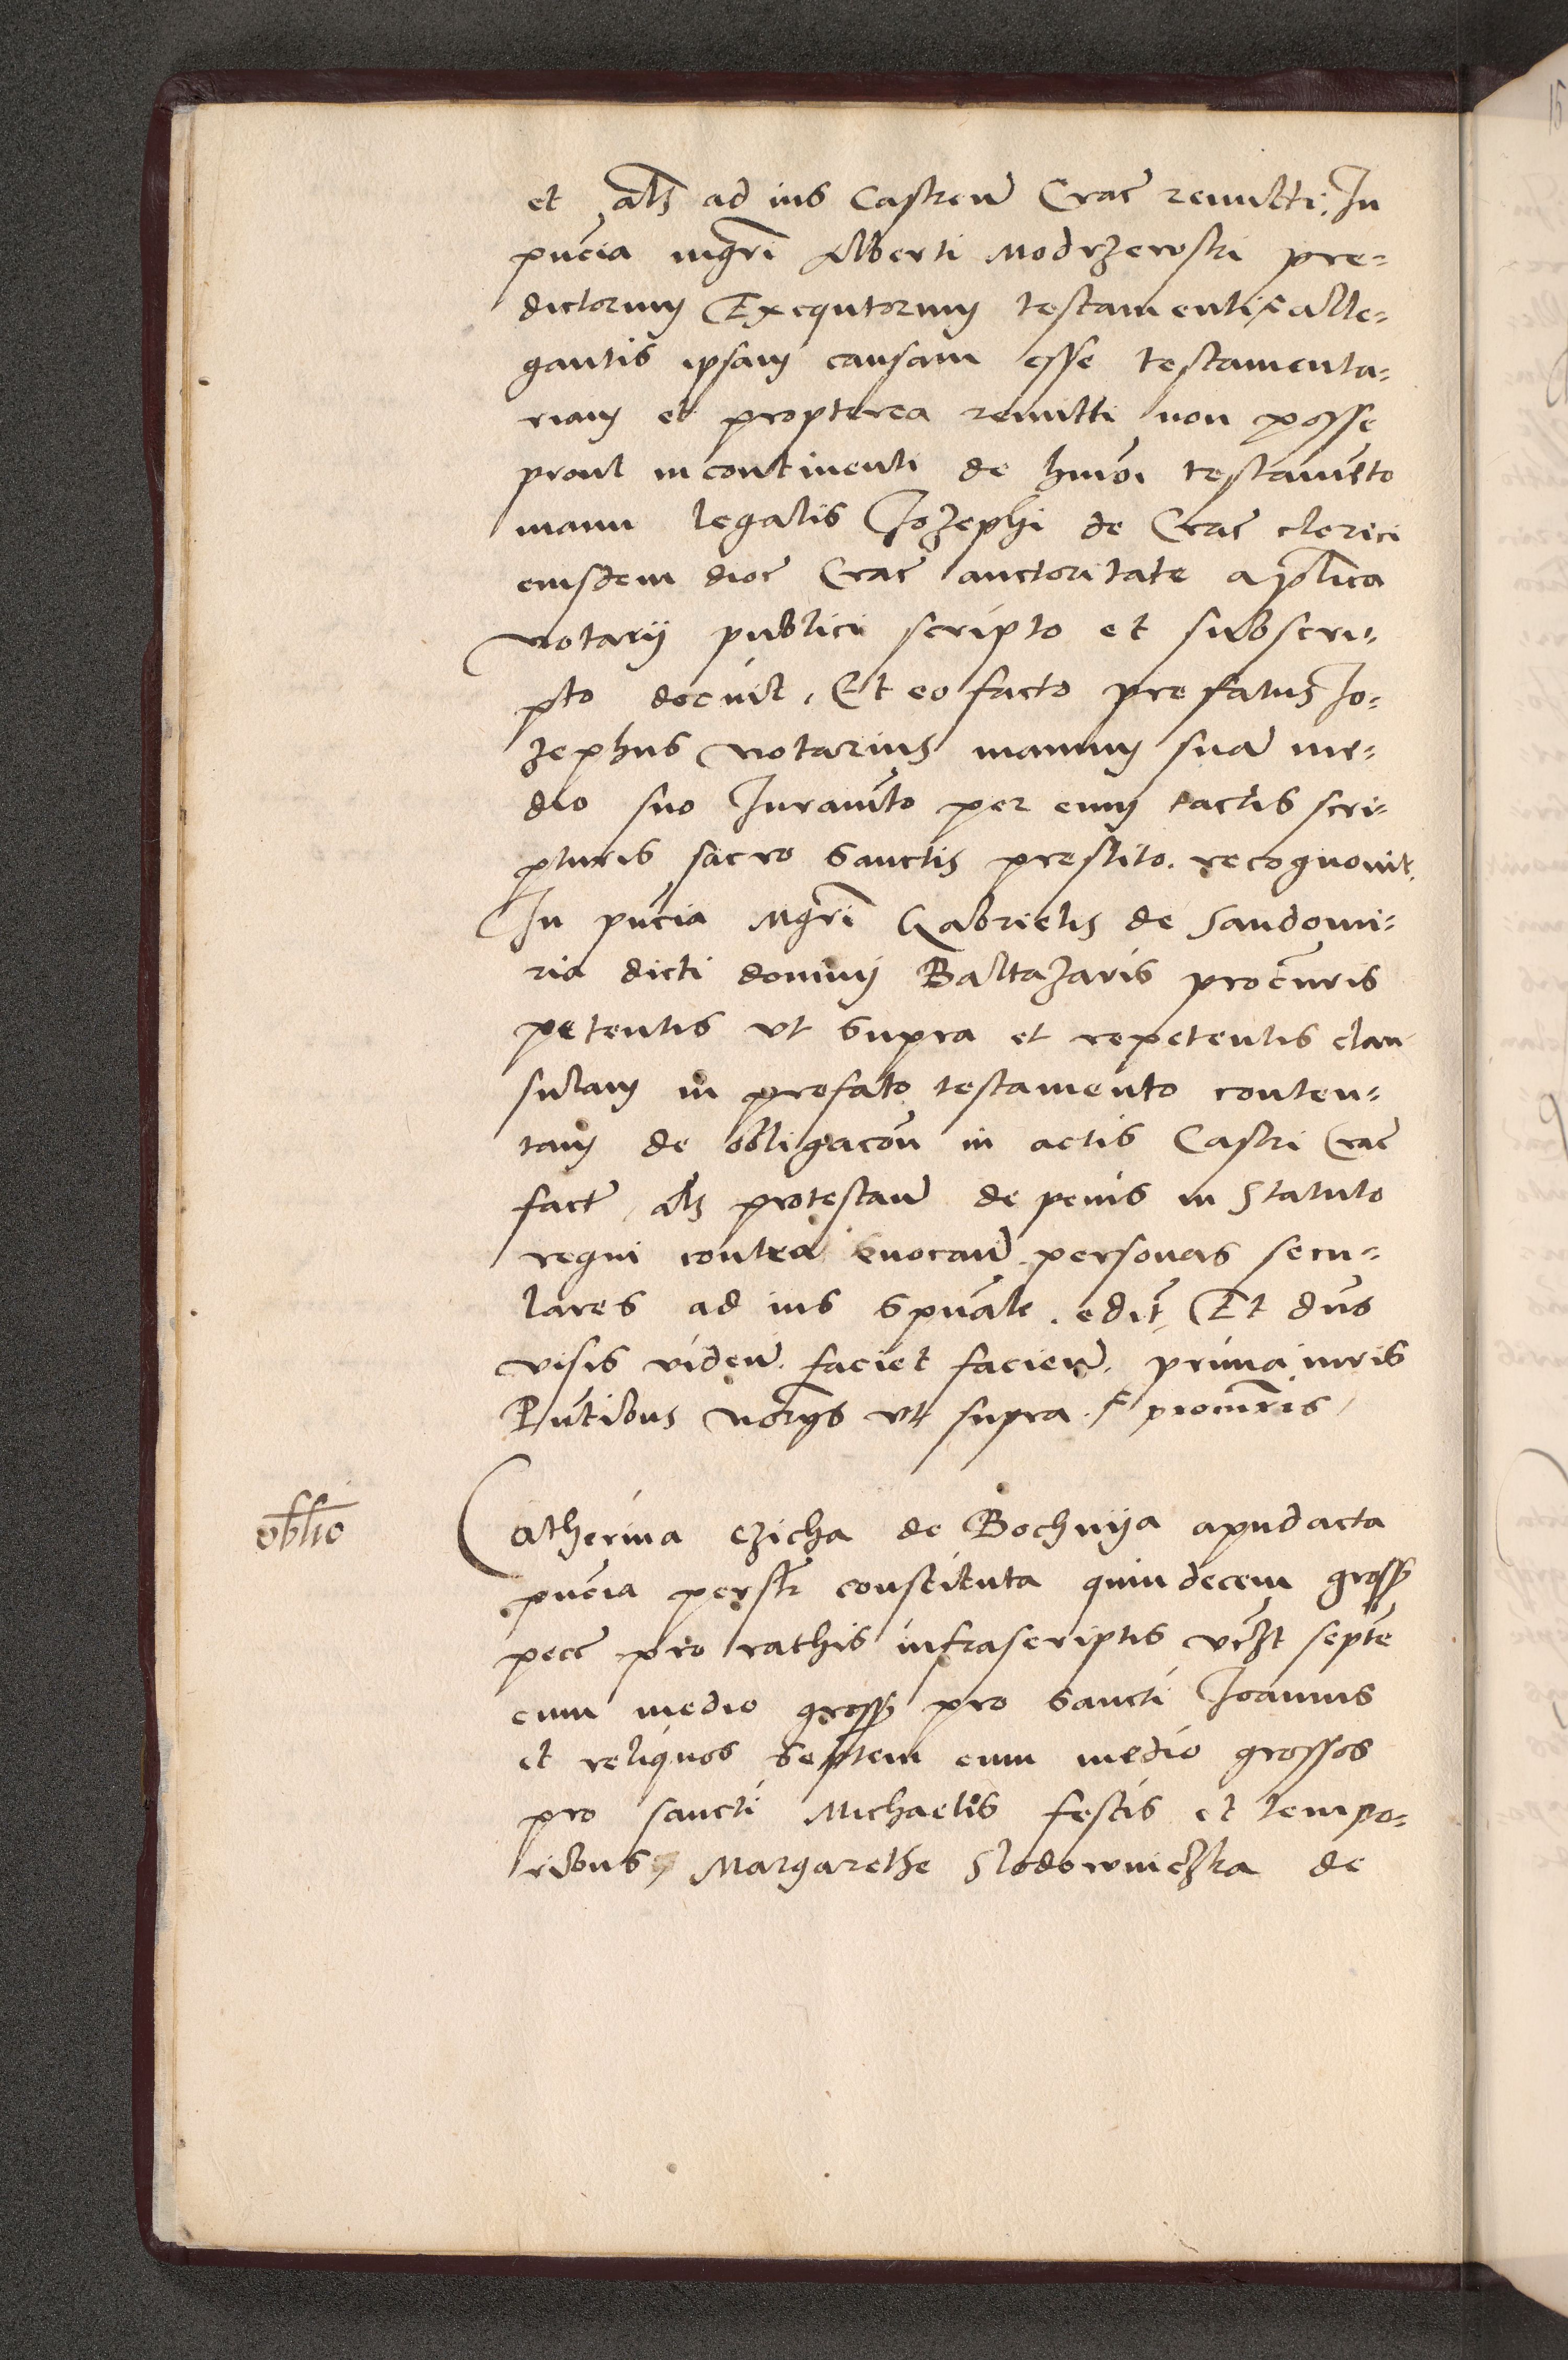 et als ad ius Castren Crac remitti. In
pncia mgri Alberti Modrzewski pre=
dictorum Exequtorum testamenti alle=
gantis ipsam causam esse testamenta=
riam et propterea remitti non posse
prout incontinenti de hmoi testamento
manu legalis Jozephi de Crac clerici
eiusdem dioc Crac auctoritate aplica
notarij publici scripto et subscri=
pto docuit. Et eo facto prefatus Jo=
zephus notarius manum sua me=
dio suo Juramto per eum tactis scri=
pturis sacro sanctis prestito. recognouit.
In pncia Mgri Gabrielis de Sandomi=
ria dicti domini Baltazaris procuris
petentis vt supra et repetentis clau
sulam in prefato testamento conten=
tam de obligacon in actis Castri Crac
fact als protestan de penis in Statuto
regni contra euocan personas secu=
lares ad ius spuale. edit Et dns
visis viden. faciet facien. prima iuris
Pntibus notrys vt supra. procuris
oblio
Catherina czicha de Bochnija apud acta
pncia persr constituta quindecem gross
pece pro rathis infrascriptis vczt septe
cum medio gross pro sancti Joannis
et reliquos septem cum medio grossos
pro sancti Michaelis festis et tempo=
ribus Margarethe Slodowniczka de